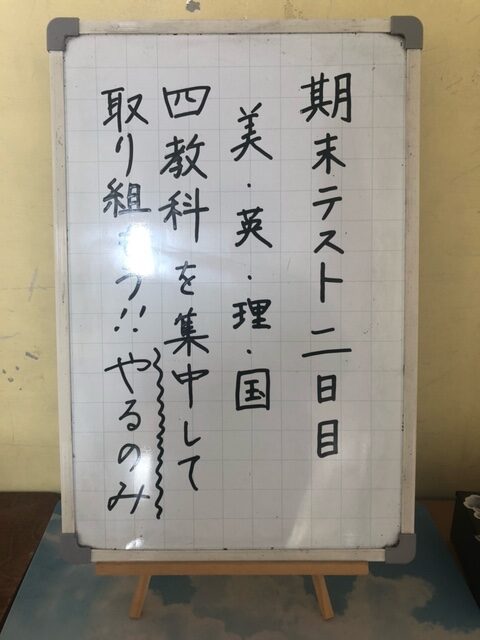 期末テスト二日目
美・英・理・国
四教科を集中して
取り組もう!!やるのみ